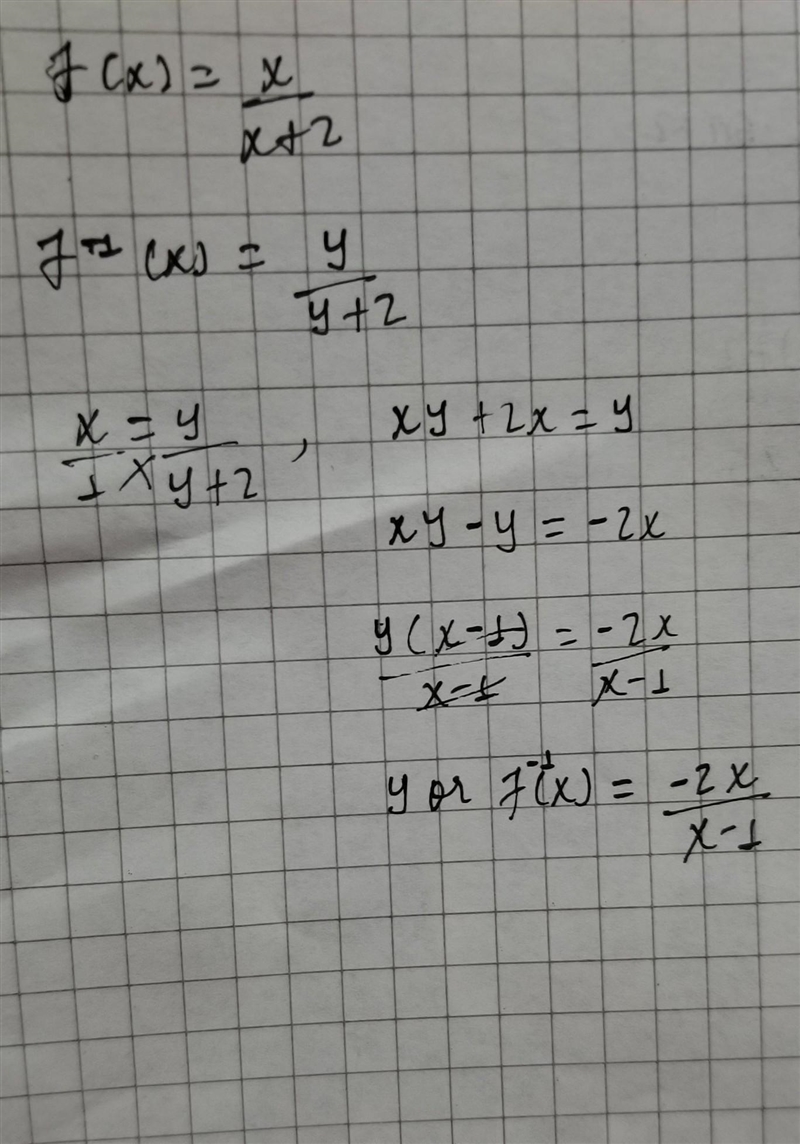 f(x) = x/(x+2)
f⁻¹(x) = y/(y+2)
x/1 = y/(y+2) , xy + 2x = y
xy - y = -2x
y(x-1)/(x-1) = -2x/(x-1)
y or f⁻¹(x) = -2x/(x-1)